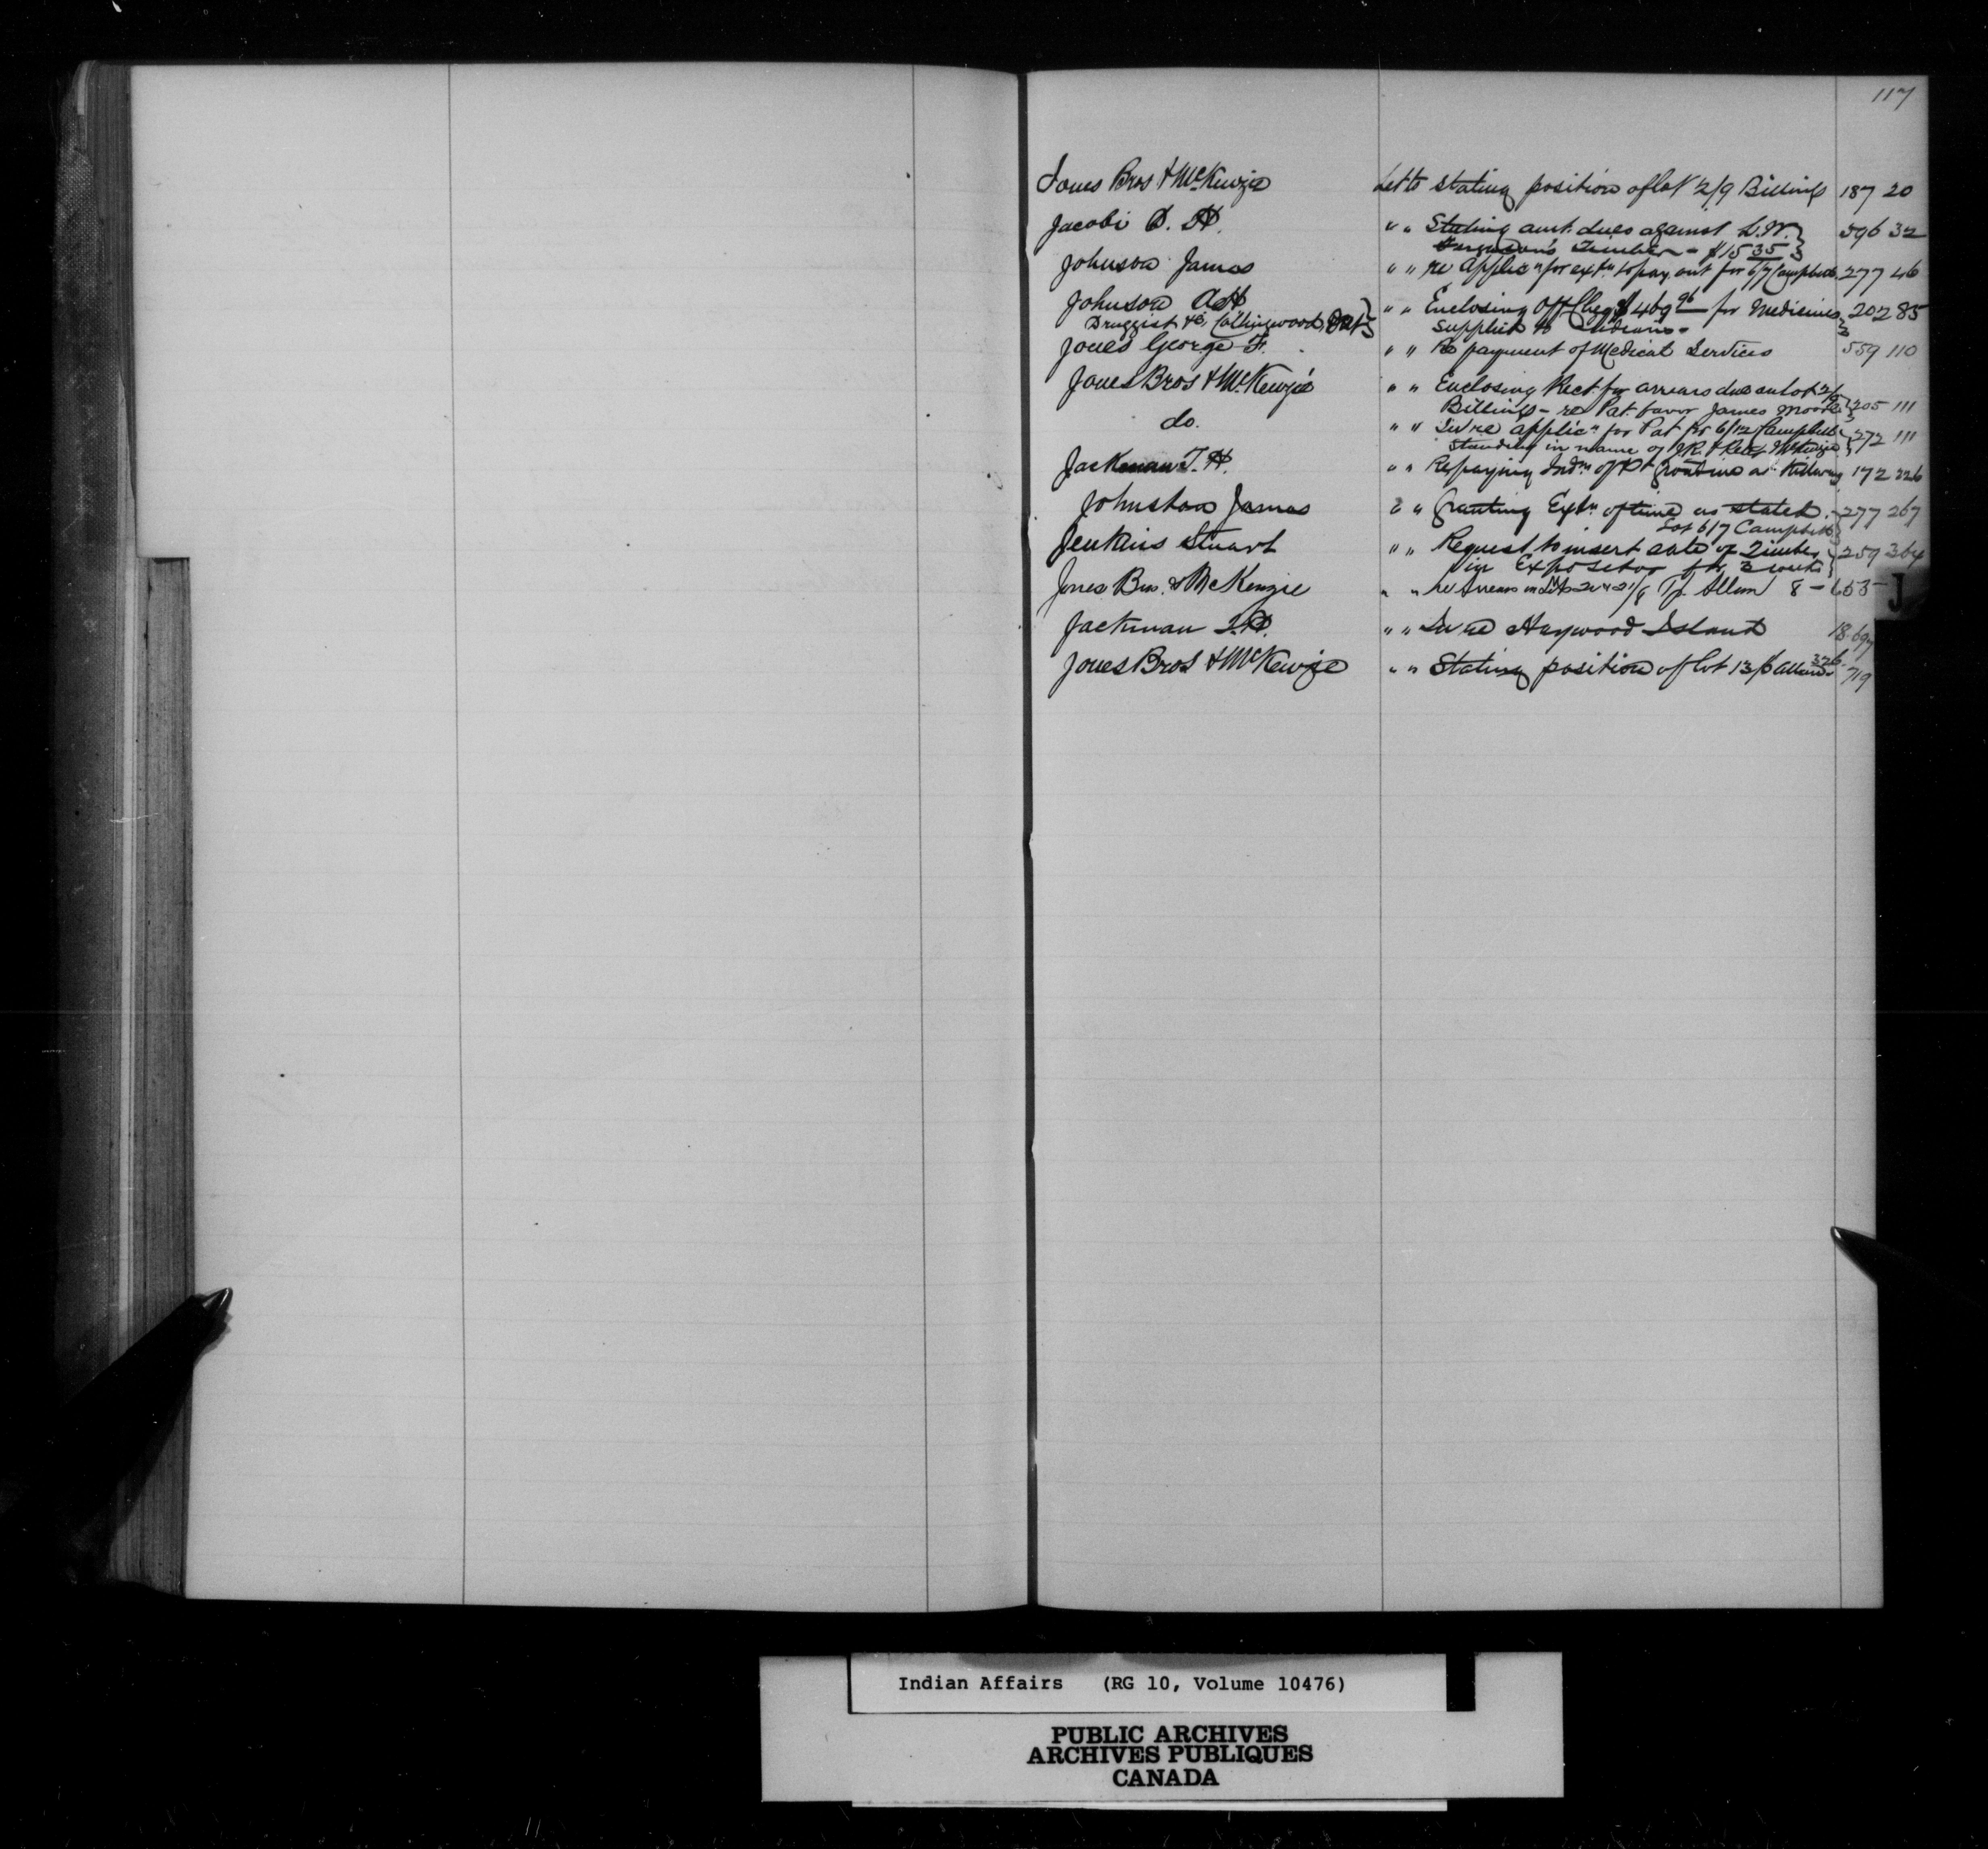 117
Jones Bros & McKenzie Let to stating position of lot 2/9 Billings 187 20
Jacobi D. H. " " Stating amt. dues against L.W. } 396 32
Ferguson's Timber - $15 35 }
Johnson James " " re Applicn for extn to pay amt for 6/7 Campbell 277 46
Johnson A H " " Enclosing Off Cheq $469 96 for Medicines } 202 85
Druggist &c, Collingwood, Ont } supplied to Indians - }
Jones George F. " " Re payment of Medical Services 559 110
Jones Bros & McKenzie " " Enclosing Rect. for arrears due on lot 2/9 }
Billings - re Pat. favor James Moore } 205 111
do. " " In re applicn for Pat for 6/12 Campbell } 272 111
Standing in name of J.R. & McKenzie }
Jackman T. H. " " Re paying Indns of Pt Grondine 172 226
Johnston James " " Granting Extn of time as stated. } 277 267
Lot 6/7 Campbell }
Jenkins Stuart " " Request to insert sale of Timber } 259 364
in Expositor for 3 weeks }
Jones Bros. & McKenzie " " re Arrears on Lots 20 & 21/8 Tp. Allan 8 - 653 -
J
Jackman T. H. " " In re Haywood Island 18 697
Jones Bros & McKenzie " " Stating position of lot 13/6 Allan 326 719
Indian Affairs (RG 10, Volume 10476)
PUBLIC ARCHIVES
ARCHIVES PUBLIQUES
CANADA